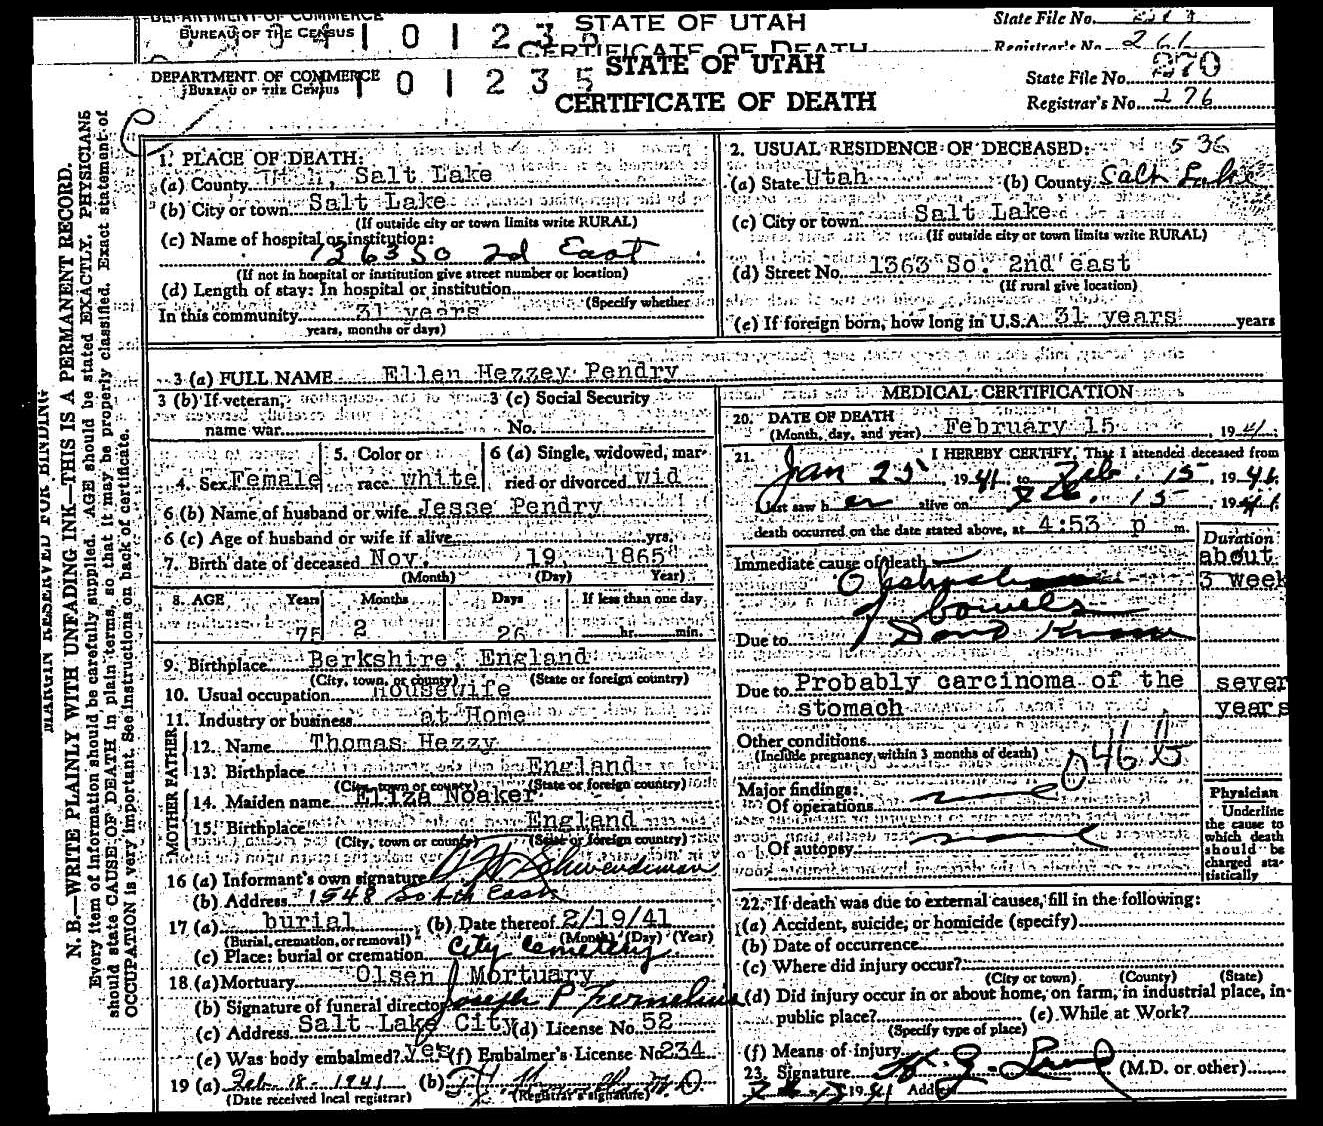 DEPARTMENT OF COMMERCE
BUREAU OF THE CENSUS
STATE OF UTAH
CERTIFICATE OF DEATH
State File No.
Registrar's No. 261
DEPARTMENT OF COMMERCE
BUREAU OF THE CENSUS
1 0 1 2 3 5
STATE OF UTAH
CERTIFICATE OF DEATH
State File No. 270
Registrar's No. 276
MARGIN RESERVED FOR BINDING
N. B.—WRITE PLAINLY WITH UNFADING INK—THIS IS A PERMANENT RECORD.
Every item of information should be carefully supplied. AGE should be stated EXACTLY. PHYSICIANS
should state CAUSE OF DEATH in plain terms, so that it may be properly classified. Exact statement of
OCCUPATION is very important. See instructions on back of certificate.
1. PLACE OF DEATH:
(a) County Utah, Salt Lake
(b) City or town Salt Lake
(If outside city or town limits write RURAL)
(c) Name of hospital or institution:
1363 So 2d East
(If not in hospital or institution give street number or location)
(d) Length of stay: In hospital or institution
(Specify whether
In this community 31 years
years, months or days)
2. USUAL RESIDENCE OF DECEASED: 536
(a) State Utah (b) County Salt Lake
(c) City or town Salt Lake
(If outside city or town limits write RURAL)
(d) Street No. 1363 So. 2nd east
(If rural give location)
(e) If foreign born, how long in U.S.A. 31 years years
3 (a) FULL NAME Ellen Hezzey Pendry
3 (b) If veteran, name war
3 (c) Social Security No.
4. Sex Female
5. Color or race white
6 (a) Single, widowed, married or divorced Wid
6 (b) Name of husband or wife Jesse Pendry
6 (c) Age of husband or wife if alive yrs.
7. Birth date of deceased Nov. 19 1865
(Month) (Day) Year)
8. AGE Years Months Days If less than one day
75 2 26 hr. min.
9. Birthplace Berkshire, England
(City, town, or county) (State or foreign country)
10. Usual occupation Housewife
11. Industry or business at Home
FATHER
12. Name Thomas Hezzy
13. Birthplace England
(City, town or county) (State or foreign country)
MOTHER
14. Maiden name Eliza Noaker
15. Birthplace England
(City, town or county) (State or foreign country)
16 (a) Informant's own signature
(b) Address 1548 South East
17 (a) burial (b) Date thereof 2/19/41
(Burial, cremation, or removal) (Month) (Day) (Year)
(c) Place: burial or cremation City Cemetery
18 (a) Mortuary Olsen Mortuary
(b) Signature of funeral director Joseph P
(c) Address Salt Lake City (d) License No. 52
(e) Was body embalmed? yes (f) Embalmer's License No. 234
19 (a) Feb. 18- 1941 (b) M D
(Date received local registrar) (Registrar's signature)
MEDICAL CERTIFICATION
20. DATE OF DEATH
(Month, day, and year) February 15, 1941
21. I HEREBY CERTIFY, That I attended deceased from
Jan 25 1941 to Feb. 15 1941
I last saw her alive on Feb. 15 1941
death occurred on the date stated above, at 4:53 p m.
Duration
Immediate cause of death about
3 week
bowels
Due to
Due to Probably carcinoma of the sever
stomach years
Other conditions
(Include pregnancy within 3 months of death) 046 b
Major findings:
Of operations none
Of autopsy none
Physician
Underline
the cause to
which death
should be
charged sta-
tistically
22. If death was due to external causes, fill in the following:
(a) Accident, suicide, or homicide (specify)
(b) Date of occurrence
(c) Where did injury occur?
(City or town) (County) (State)
(d) Did injury occur in or about home, on farm, in industrial place, in
public place? (e) While at Work?
(Specify type of place)
(f) Means of injury
23. Signature (M.D. or other)
1941 Address